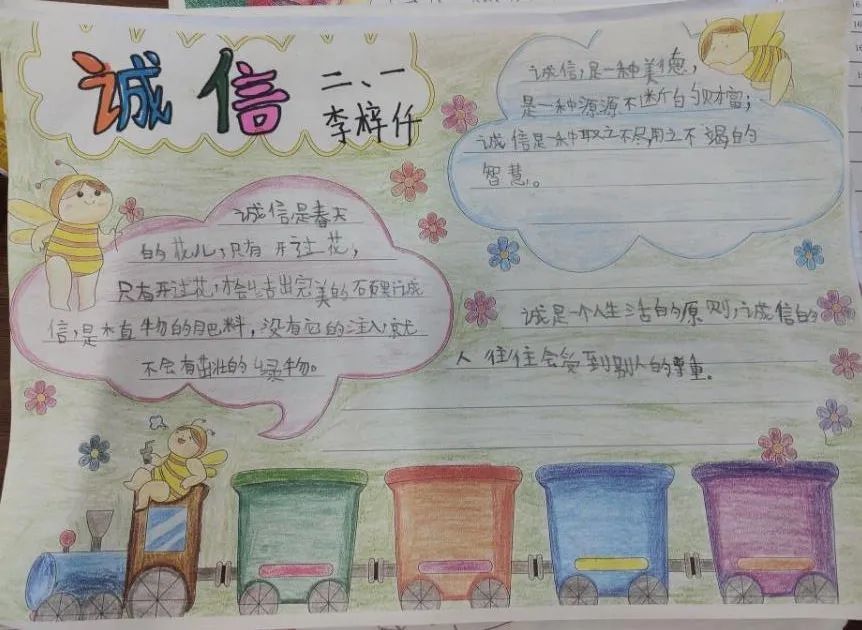 诚信
二、一
李梓仟
诚信,是一种美德,
是一种源源不断的财富;
诚信是一种取之不尽,用之不竭的
智慧。
诚信是春天
的花儿,只有开过花,
只有开过花,才会结出完美的硕果;诚
信,是植物的肥料,没有它的注入,就
不会有茁壮的绿物。
诚是一个人生活的原则,诚信的
人往往会受到别人的尊重。